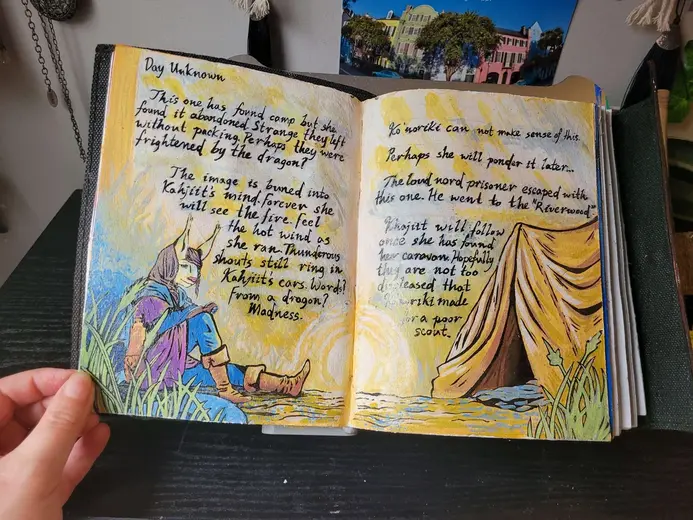 Day Unknown
This one has found camp but she
found it abandoned. Strange they left
without packing. Perhaps they were
frightened by the dragon?
The image is burned into
Kahjiit's mind. Forever she
will see the fire. feel
the hot wind as
she ran. Thunderous
shouts still ring in
Kahjiit's ears. Words?
From a dragon?
Madness.
Ko'noriki can not make sense of this.
Perhaps she will ponder it later...
The loud nord prisoner escaped with
this one. He went to the "Riverwood"
Khajiit will follow
once she has found
her caravan. Hopefully
they are not too
displeased that
made
for a poor
scout.